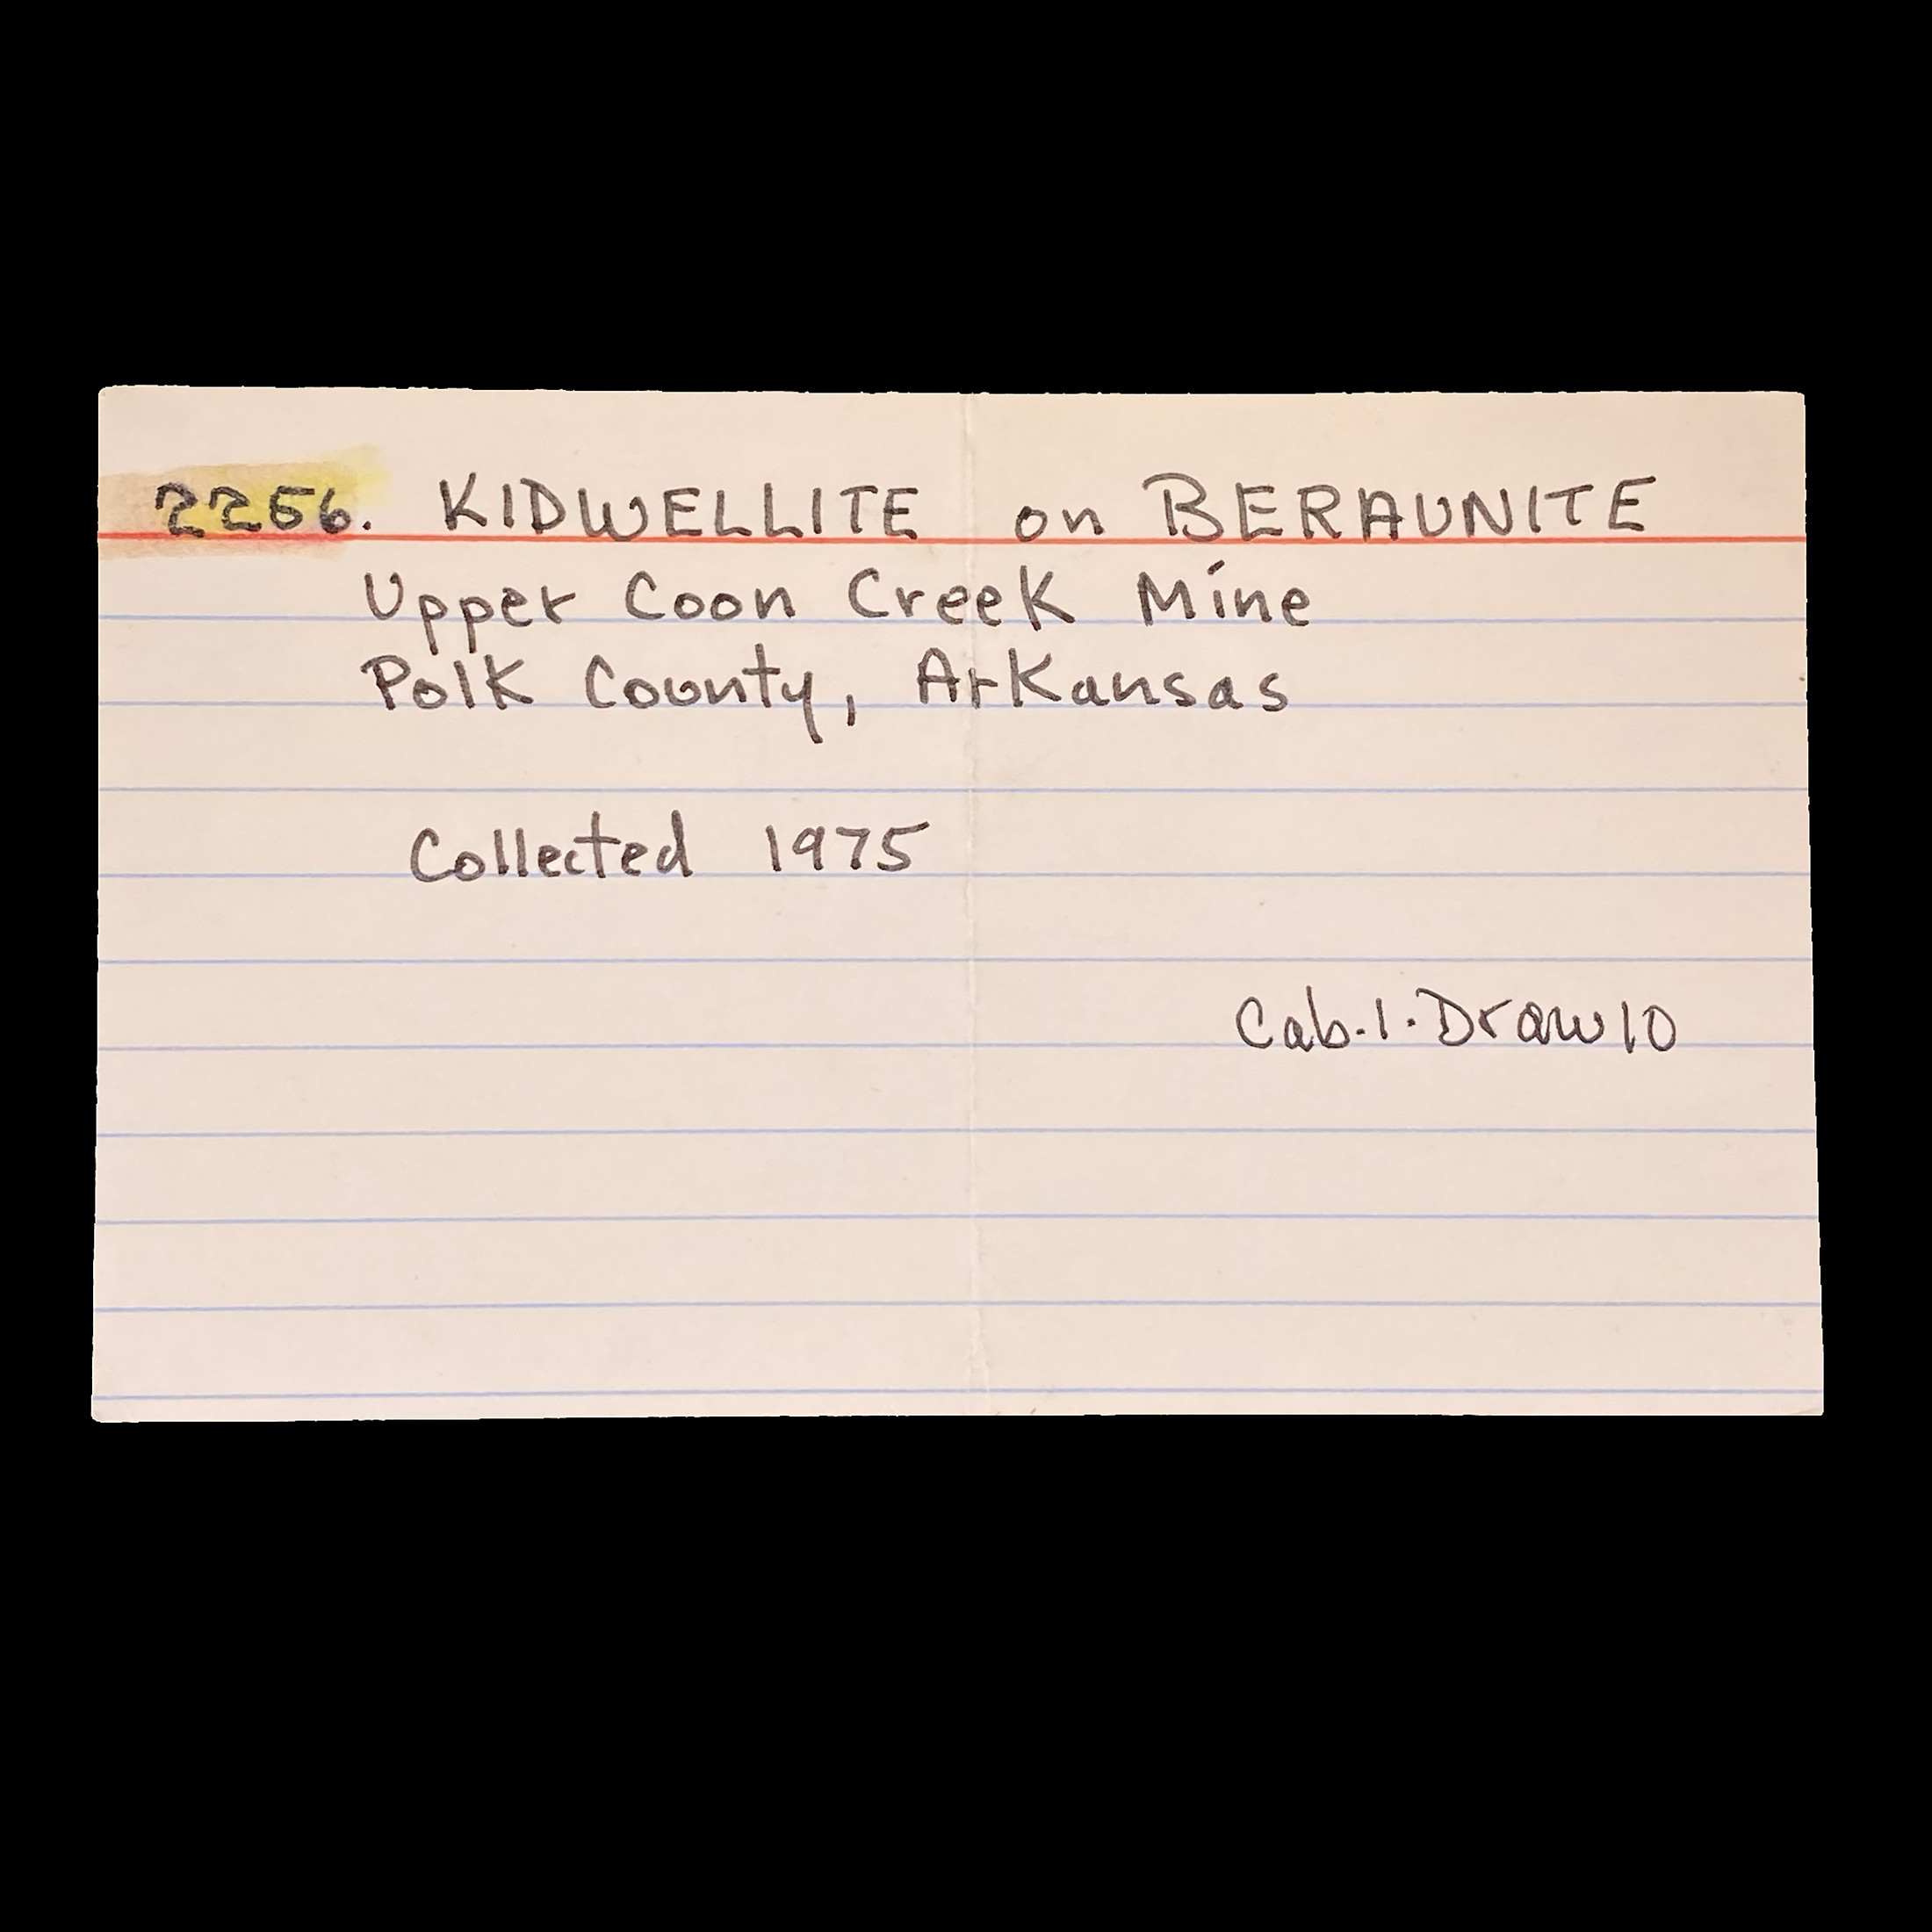 2256. KIDWELLITE on BERAUNITE
Upper Coon Creek Mine
Polk County, Arkansas
Collected 1975
Cab.1.Draw10